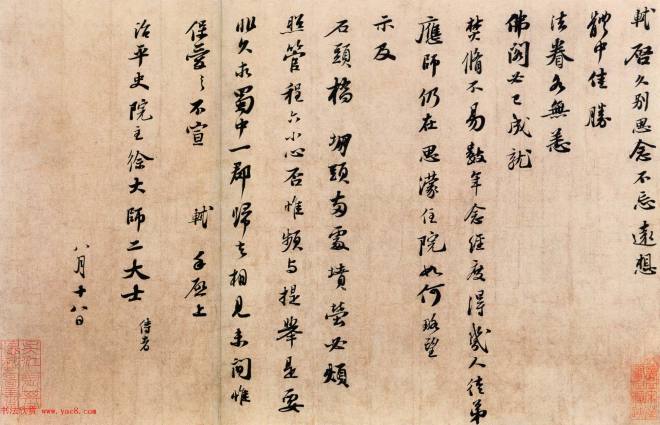 軾啓久別思念不忘遠想
體中佳勝
法眷各無恙
佛閣必已成就
焚脩不易數年念經度得幾人徒弟
應師仍在思濛住院如何略望
示及
石頭橋堋頭兩處墳塋必煩
照管程六小心否惟頻与提舉是要
非久求蜀中一郡歸去相見未間惟
保愛之不宣 軾手啓上
治平史院主徐大師二大士 侍者
八月十八日
书法欣赏
www.yac8.com